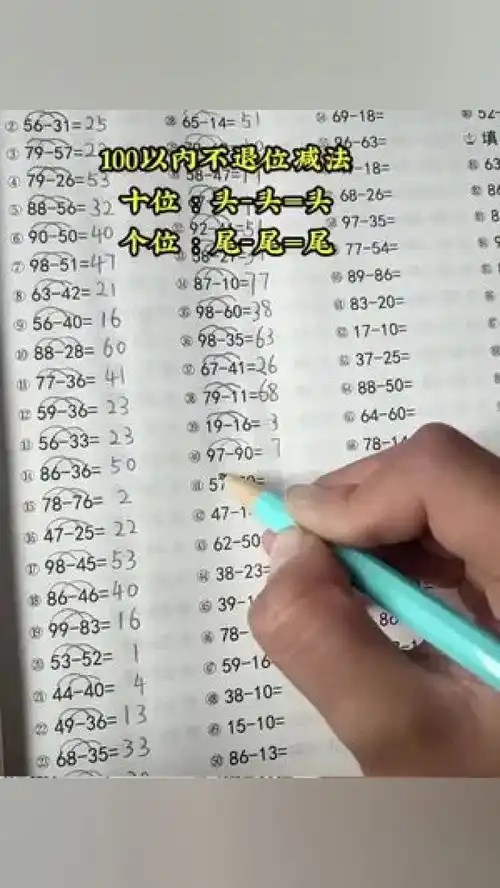 100以内不退位减法
十位：头-头=头
个位：尾-尾=尾
② 56-31=25
③ 79-57=2
④ 79-26=53
⑤ 88-56=32
⑥ 90-50=40
⑦ 98-51=47
⑧ 63-42=21
⑨ 56-40=16
⑩ 88-28=60
⑪ 77-36=41
⑫ 59-36=23
⑬ 56-33=23
⑭ 86-36=50
⑮ 78-76=2
⑯ 47-25=22
⑰ 98-45=53
⑱ 86-46=40
⑲ 99-83=16
⑳ 53-52=1
㉑ 44-40=4
㉒ 49-36=13
㉓ 68-35=33
65-14=51
58-47=
87-10=77
98-60=38
98-35=63
67-41=26
79-11=68
19-16=3
㊵ 97-90=7
㊶ 57
㊷ 47-1
㊸ 62-50
㊹ 38-23=
㊺ 39-1
㊻ 78-
㊼ 59-16
㊽ 38-10=
㊾ 15-10=
㊿ 86-13=
69-18=
96-63=
-18=
68-26=
97-35=
77-54=
89-86=
83-20=
17-10=
37-25=
88-50=
64-60=
78-14
86
52-
填
63
86